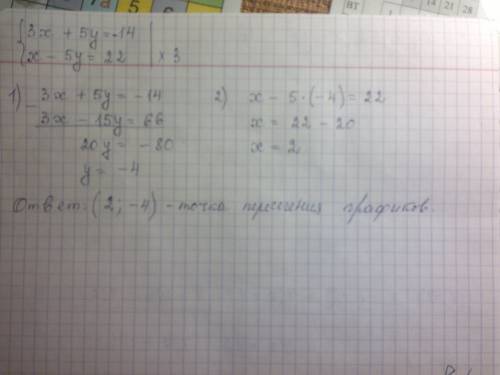 7a 5 6
ВТ 14 21 28
{ 3x + 5y = -14
x - 5y = 22 | x 3
1) - 3x + 5y = -14
3x - 15y = 66
20y = -80
y = -4
2) x - 5·(-4) = 22
x = 22 - 20
x = 2
Ответ: (2; -4) - точка пересечения графиков.